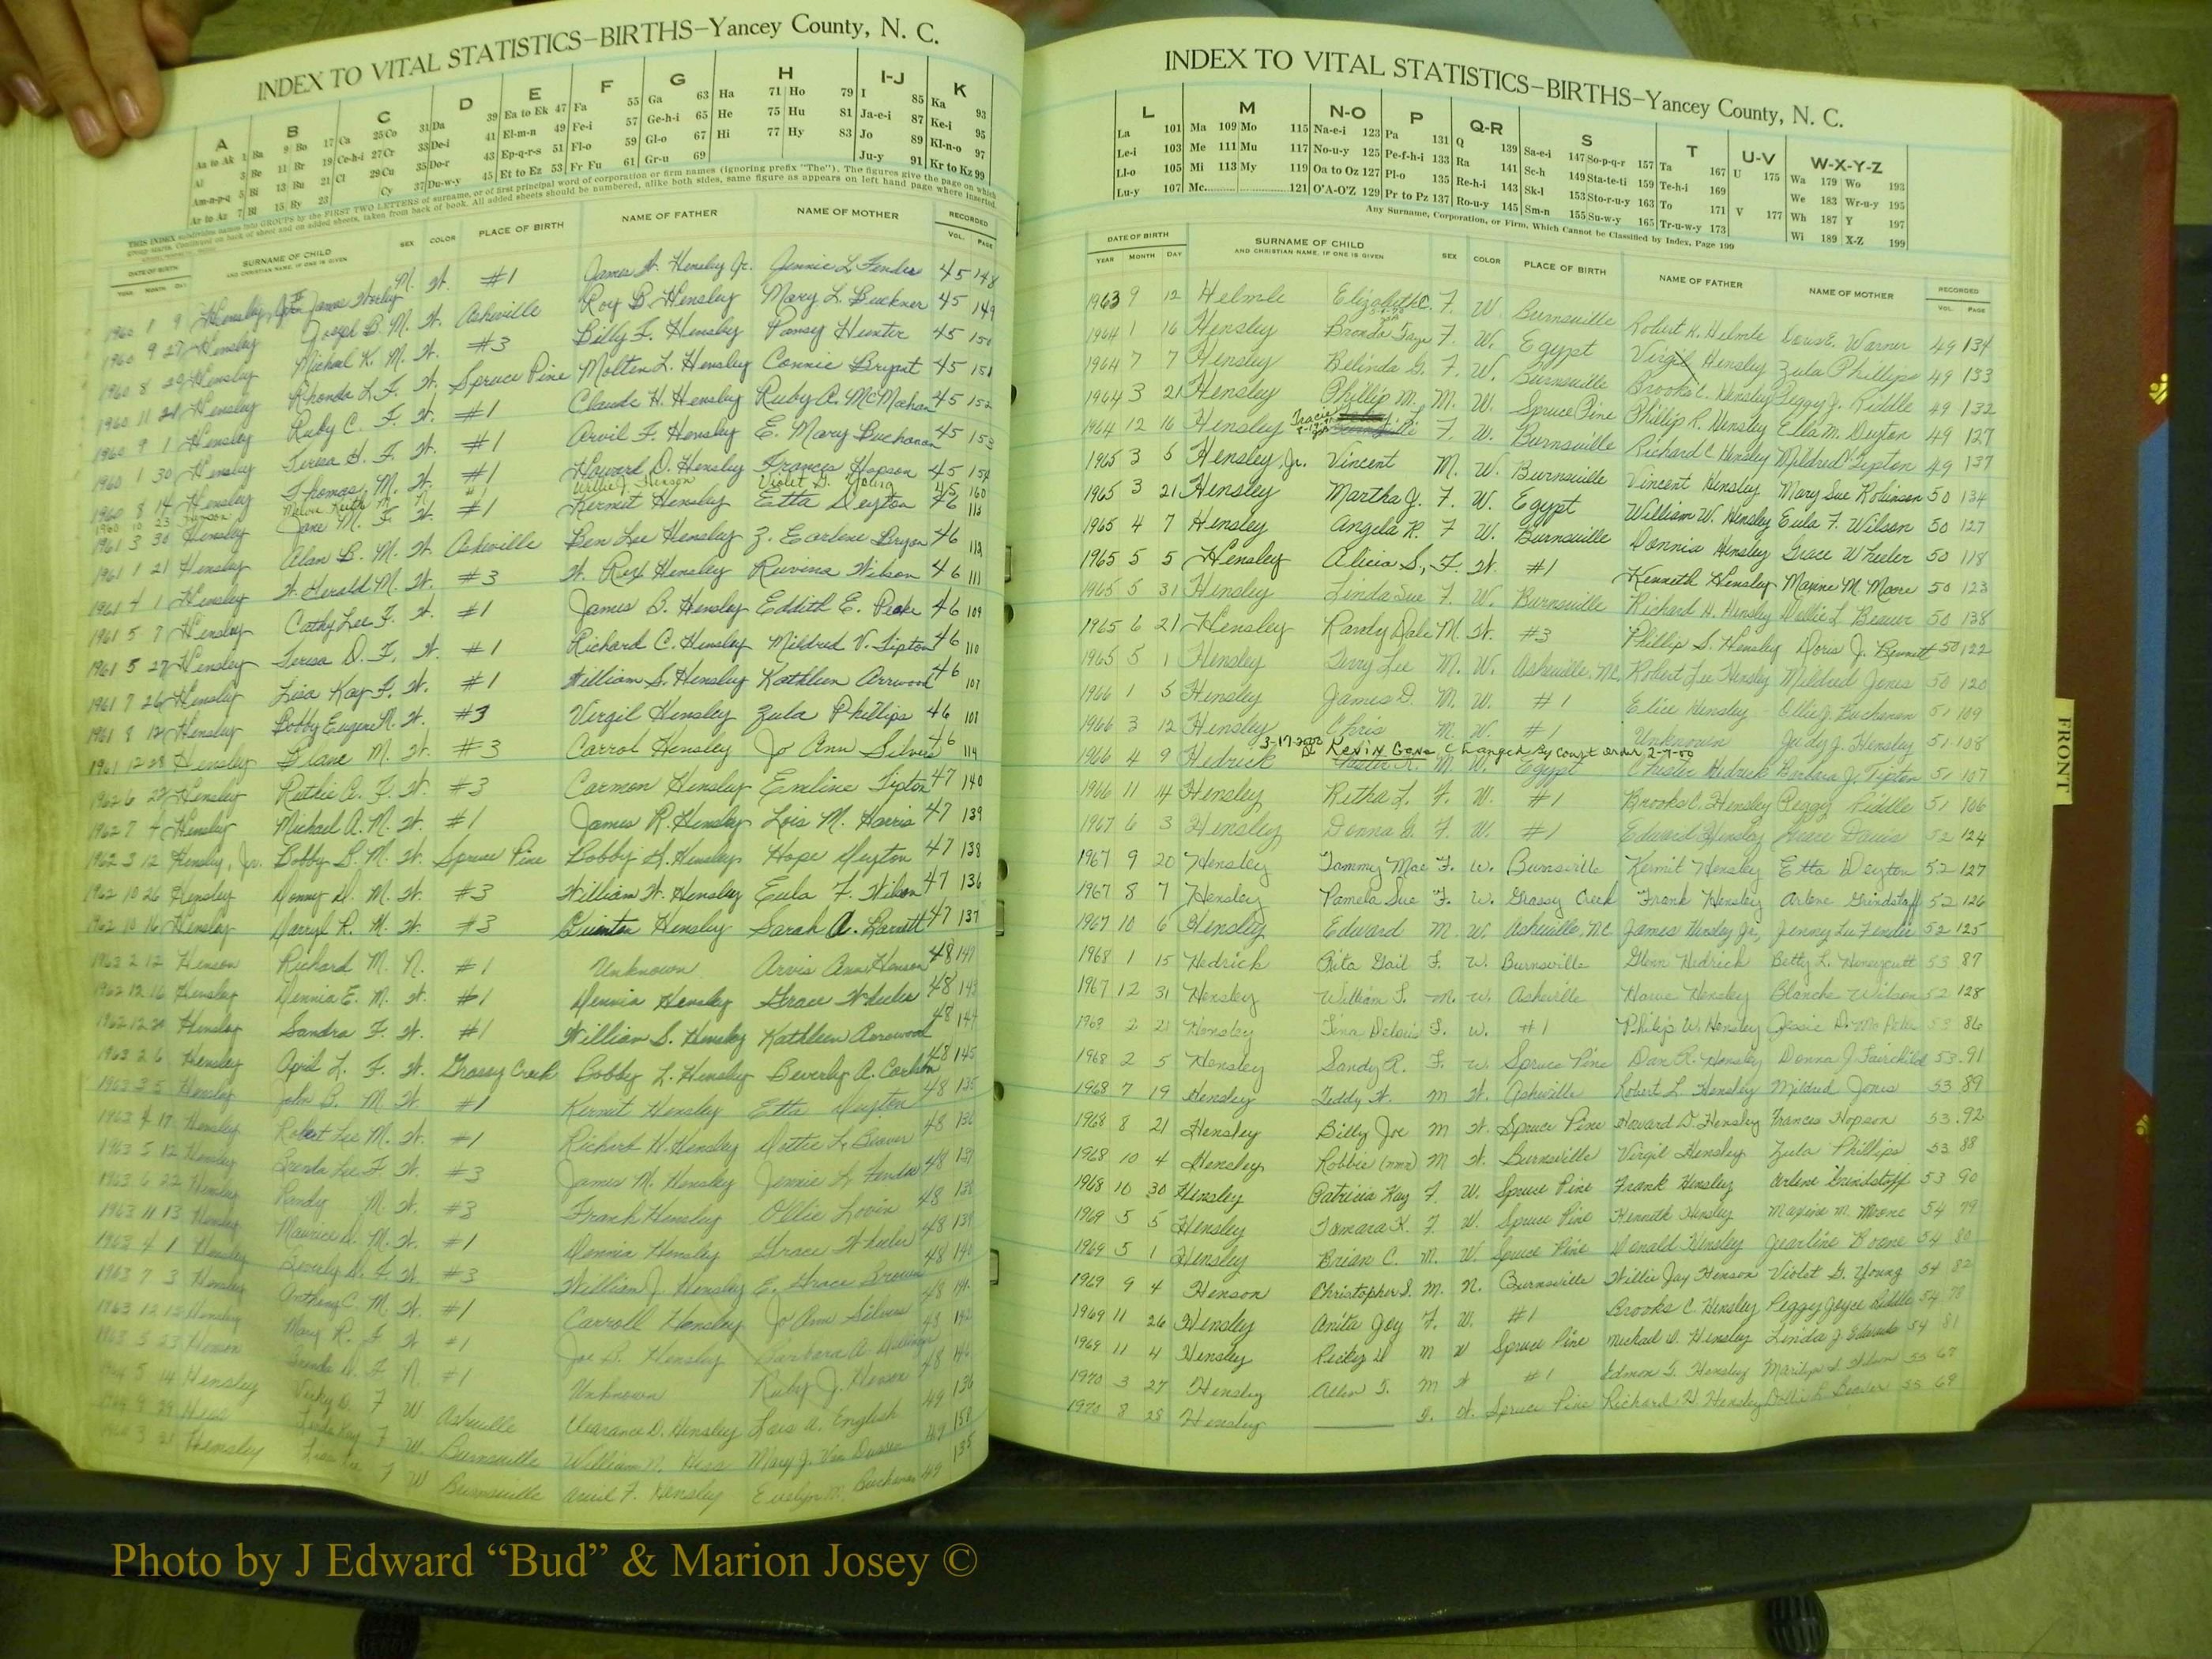 INDEX TO VITAL STATISTICS–BIRTHS–Yancey County, N. C.
A B C D E F G H I-J K
Aa to Ak 1 Ba 9 Bo 17 Ca 25 Co 31 Da 39 Ea to Ek 47 Fa 55 Ga 63 Ha 71 Ho 79 I 85 Ka 93
Al 3 Be 11 Br 19 Ce-h-i 27 Cr 33 De-i 41 El-m-n 49 Fe-i 57 Ge-h-i 65 He 75 Hu 81 Ja-e-i 87 Ke-i 95
Am-n-p-q 5 Bi 13 Bu 21 Cl 29 Cu 35 Do-r 43 Ep-q-r-s 51 Fl-o 59 Gl-o 67 Hi 77 Hy 83 Jo 89 Kl-n-o 97
Ar to Az 7 Bl 15 By 23 Cy 37 Du-w-y 45 Et to Ez 53 Fr Fu 61 Gr-u 69 Ju-y 91 Kr to Kz 99
THIS INDEX subdivides names into GROUPS by the FIRST TWO LETTERS of surname, or of first principal word of corporation or firm names (ignoring prefix "The"). The figures give the page on which
group starts. Continued on back of sheet and on added sheets, taken from back of book. All added sheets should be numbered, alike both sides, same figure as appears on left hand page where inserted.
DATE OF BIRTH SURNAME OF CHILD SEX COLOR PLACE OF BIRTH NAME OF FATHER NAME OF MOTHER RECORDED
YEAR MONTH DAY AND CHRISTIAN NAME, IF ONE IS GIVEN VOL. PAGE
1960 1 9 Hensley, James Worley M. W. #1 James W. Hensley Jr. Jennie L. Fender 45 148
1960 9 27 Hensley Joseph B. M. W. Asheville Roy B. Hensley Mary L. Buckner 45 149
1960 8 29 Hensley Michael K. M. W. #3 Billy F. Hensley Pansy Hunter 45 150
1960 11 21 Hensley Rhonda L. F. W. Spruce Pine Molten L. Hensley Connie Bryant 45 151
1960 9 1 Hensley Ruby C. F. W. #1 Claude H. Hensley Ruby A. McMahan 45 152
1960 1 30 Hensley Teresa G. F. W. #1 Arvil F. Hensley E. Mary Buchanan 45 153
1960 8 14 Hensley Thomas M. W. #1 Howard D. Hensley Frances Hopson 45 154
1960 10 23 Keith M N " Willie J. Henson Violet G. Young 45 160
1961 3 30 Hensley Jane M. F. W. #1 Kermit Hensley Etta Deyton 46 113
1961 1 21 Hensley Alan B. M. W. Asheville Ben Lee Hensley Z. Earlene Bryon 46 112
1961 4 1 Hensley W. Herald M. W. #3 W. Rex Hensley Revina Wilson 46 111
1961 5 7 Hensley Cathy Lee F. W. #1 James B. Hensley Eddith E. Peake 46 109
1961 5 27 Hensley Teresa D. F. W. #1 Richard C. Hensley Mildred V. Tipton 46 110
1961 7 26 Hensley Lisa Kay F. W. #1 William S. Hensley Kathleen Arrwood 46 107
1961 8 12 Hensley Bobby Eugene M. W. #3 Virgil Hensley Zula Phillips 46 108
1961 12 28 Hensley M. W. #3 Carrol Hensley Jo Ann Silvers 46 114
1962 6 22 Hensley Ruthie A. F. W. #3 Carmon Hensley Emeline Tipton 47 140
1962 7 4 Hensley Michael A. M. W. #1 James R. Hensley Lois M. Harris 47 139
1962 3 12 Hensley, Jr. Bobby M. W. Spruce Pine Bobby Hensley Hope Deyton 47 138
1962 10 26 Hensley Donny D. M. W. #3 William W. Hensley Eula F. Wilson 47 136
1962 10 16 Hensley Darryl R. M. W. #3 Quinton Hensley Sarah A. Barnett 47 137
1963 2 12 Henson Richard M. N. #1 Unknown Arvis Ann Henson 48 147
1962 12 16 Hensley Dennis E. M. W. #1 Dennis Hensley Grace Wheeler 48 143
1962 12 Hensley Sandra F. W. #1 William S. Hensley Kathleen Arrowood 48 144
1963 2 6 Hensley April L. F. W. Grassy Creek Bobby L. Hensley Beverly A. 48 145
1963 3 5 Hensley John B. M W #1 Kermit Hensley Etta Deyton 48 135
1963 4 17 Hensley Robert Lee M. W. #1 Richard H. Hensley Dottie L. Beaver 48 136
1963 5 12 Hensley Brenda Lee F W. #3 James M. Hensley Jennie L. Fender 48 137
1963 6 22 Hensley Randy M. W. #3 Frank Hensley Ollie Lovin 48 138
1963 11 13 Hensley Maurice D. M. W. #1 Dennis Hensley Grace Wheeler 48 139
1963 4 1 Hensley Beverly F W #3 William J. Hensley E. Grace Brown 48 140
1963 7 3 Hensley Anthony C. M. W. #1 Carroll Hensley Jo Ann Silvers 48
1963 12 12 Hensley Mary R. F W #1 Joe B. Hensley Barbara A. 48 142
1963 3 23 Henson Brenda F N. #1 Unknown Ruby J. Henson 48 146
5 14 Hensley Vicky D. F W Asheville Clearance D. Hensley Lois A. English 49 136
9 29 Hess Kay F W. Burnsville William N. Hess Mary J. Van 49
3 21 Hensley F W Burnsville Arvil F. Hensley Evelyn M. Buchanan 49 135
INDEX TO VITAL STATISTICS–BIRTHS–Yancey County, N. C.
L M N-O P Q-R S T U-V W-X-Y-Z
La 101 Ma 109 Mo 115 Na-e-i 123 Pa 131 Q 139 Sa-e-i 147 So-p-q-r 157 Ta 167 U 175 Wa 179 Wo 193
Le-i 103 Me 111 Mu 117 No-u-y 125 Pe-f-h-i 133 Ra 141 Sc-h 149 Sta-te-ti 159 Te-h-i 169 We 183 Wr-u-y 195
Ll-o 105 Mi 113 My 119 Oa to Oz 127 Pl-o 135 Re-h-i 143 Sk-l 153 Sto-r-u-y 163 To 171 V 177 Wh 187 Y 197
Lu-y 107 Mc 121 O'A-O'Z 129 Pr to Pz 137 Ro-u-y 145 Sm-n 155 Su-w-y 165 Tr-u-w-y 173 Wi 189 X-Z 199
Any Surname, Corporation, or Firm, Which Cannot be Classified by Index, Page 199
DATE OF BIRTH SURNAME OF CHILD SEX COLOR PLACE OF BIRTH NAME OF FATHER NAME OF MOTHER RECORDED
YEAR MONTH DAY AND CHRISTIAN NAME, IF ONE IS GIVEN VOL. PAGE
1963 9 12 Helmle Elizabeth C. F. W. Burnsville Robert K. Helmle Doris E. Warner 49 134
1964 1 16 Hensley Bronda Faye F. W. Egypt Virgil Hensley Zula Phillips 49 133
1964 7 7 Hensley Belinda G. F. W. Burnsville Brooks C. Hensley Peggy J. Riddle 49 132
1964 3 21 Hensley Phillip M. M. W. Spruce Pine Phillip R. Hensley Ella M. Deyton 49 127
1964 12 16 Hensley Tracie F. W. Burnsville Richard C Hensley Mildred Tipton 49 137
1965 3 5 Hensley, Jr. Vincent M. W. Burnsville Vincent Hensley Mary Sue Robinson 50 134
1965 3 21 Hensley Martha J. F. W. Egypt William W. Hensley Eula F. Wilson 50 127
1965 4 7 Hensley Angela R. F W. Burnsville Donnis Hensley Grace Wheeler 50 118
1965 5 5 Hensley Alicia S., F. W. #1 Kenneth Hensley Maxine M. Moore 50 123
1965 5 31 Hensley Linda Sue F. W. Burnsville Richard H. Hensley Dollie L Beaver 50 138
1965 6 21 Hensley Randy Dale M. W. #3 Phillip S. Hensley Doris J. Bennett 50 122
1965 5 1 Hensley Terry Lee M. W. Asheville, NC Robert Lee Hensley Mildred Jones 50 120
1966 1 5 Hensley James D. M. W. #1 Elice Hensley Ollie J. Buchanan 51 109
1966 3 12 Hensley Chris M. W. #1 Unknown Judy J. Hensley 51 108
3-17-2002 Kevin Gene Changed By Court order 2-7-00
1966 4 9 Hedrick M. W. Egypt Chester Hedrick Barbara J. Tipton 51 107
1966 11 14 Hensley Retha L. F. W. #1 Brooks C. Hensley Peggy Riddle 51 106
1967 6 3 Hensley Donna G. F. W. #1 Edward Hensley Davis 52 124
1967 9 20 Hensley Tammy Mae F. W. Burnsville Kermit Hensley Etta Deyton 52 127
1967 8 7 Hensley Pamela Sue F. W. Grassy Creek Frank Hensley Arlene Grindstaff 52 126
1967 10 6 Hensley Edward M W. Asheville, NC James Hensley Jr, Jenny Lee Fender 52 125
1968 1 15 Hedrick Rita Gail F. W. Burnsville Glenn Hedrick Betty L. Honeycutt 53 87
1967 12 31 Hensley William T. M. W. Asheville Howie Hensley Blanche Wilson 52 128
1968 2 21 Hensley Tina Delois F. W. #1 Philip W. Hensley Jessie D. McPeters 53 86
1968 2 5 Hensley Sandy R. F. W Spruce Pine Dan R. Hensley Donna J. Fairchild 53 91
1968 7 19 Hensley Teddy W. M W. Asheville Robert L Hensley Mildred Jones 53 89
1968 8 21 Hensley Billy Joe M W. Spruce Pine Howard D. Hensley Frances Hopson 53 92
1968 10 4 Hensley Robbie (nmn) M W. Burnsville Virgil Hensley Zula Phillips 53 88
1968 10 30 Hensley Patricia Kay F. W. Spruce Pine Frank Hensley Arlene Grindstaff 53 90
1969 5 5 Hensley Tamara K. F. W. Spruce Pine Kenneth Hensley Maxine M. Moore 54 79
1969 5 1 Hensley Brian C. M. W. Spruce Pine Donald Hensley Jearline Boone 54 80
1969 9 4 Henson Christopher S. M. N. Burnsville Willie Jay Henson Violet G. Young 54 82
1969 11 26 Hensley Anita Joy F. W. #1 Brooks C Hensley Peggy Joyce Riddle 54 78
1969 11 4 Hensley Ricky D M W Spruce Pine Michael D. Hensley Linda J. Edwards 54 81
1970 3 27 Hensley Allen T. M W #1 Edmon T. Hensley Marilyn Wilson 55 67
1970 8 28 Hensley F. W. Spruce Pine Richard H Hensley Beaver 55 69
FRONT
Photo by J Edward “Bud” & Marion Josey ©